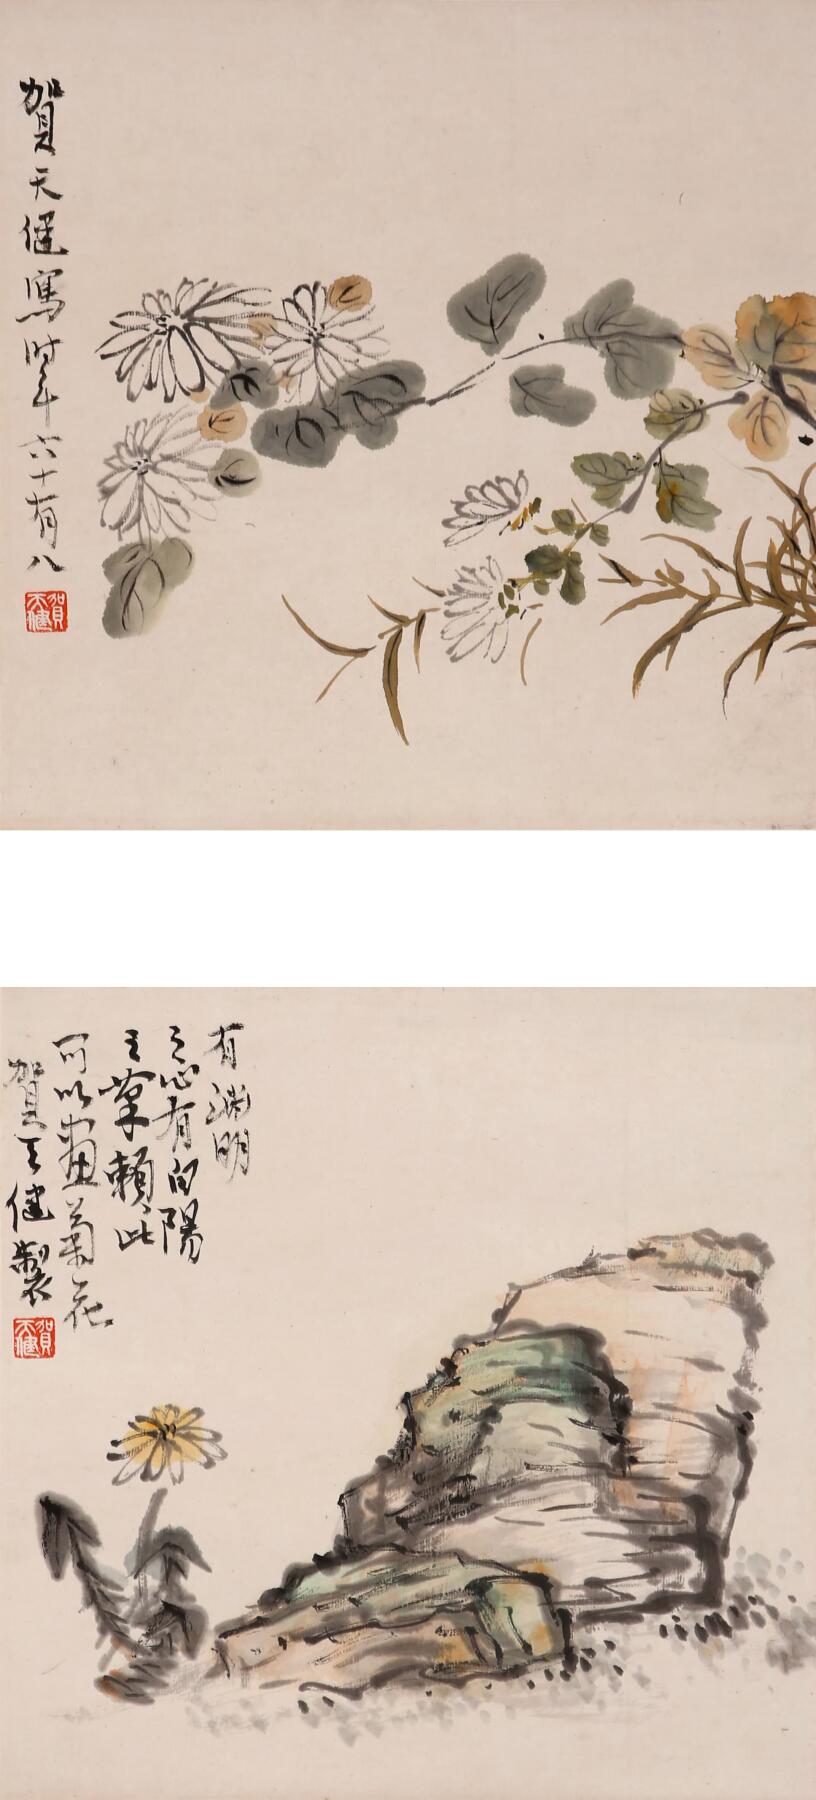 賀天健寫時年六十有八
賀天健
有淵明
之心有白陽
之筆賴此
可以畫菊花
賀天健製
賀天健